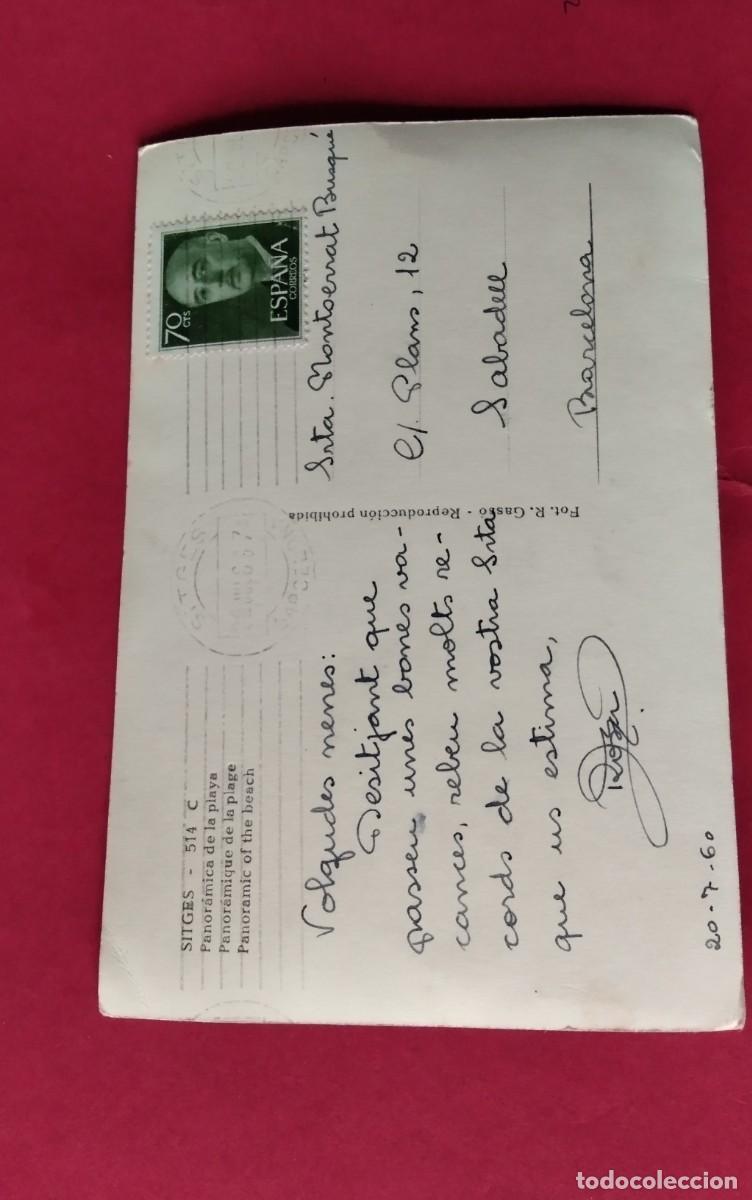 SITGES - 514 C
Panorámica de la playa
Panorámique de la plage
Panoramic of the beach
Volgudes nenes:
Desitjant que
passeu unes bones va-
cances, rebeu molts re-
cords de la vostra Srta
que us estima,
Rosa
20-7-60
Fot. R. Gassó - Reproducción prohibida
SITGES
70
CTS
ESPAÑA
CORREOS
Srta. Montserrat Busqué
C/. Plans, 12
Sabadell
Barcelona
todocoleccion